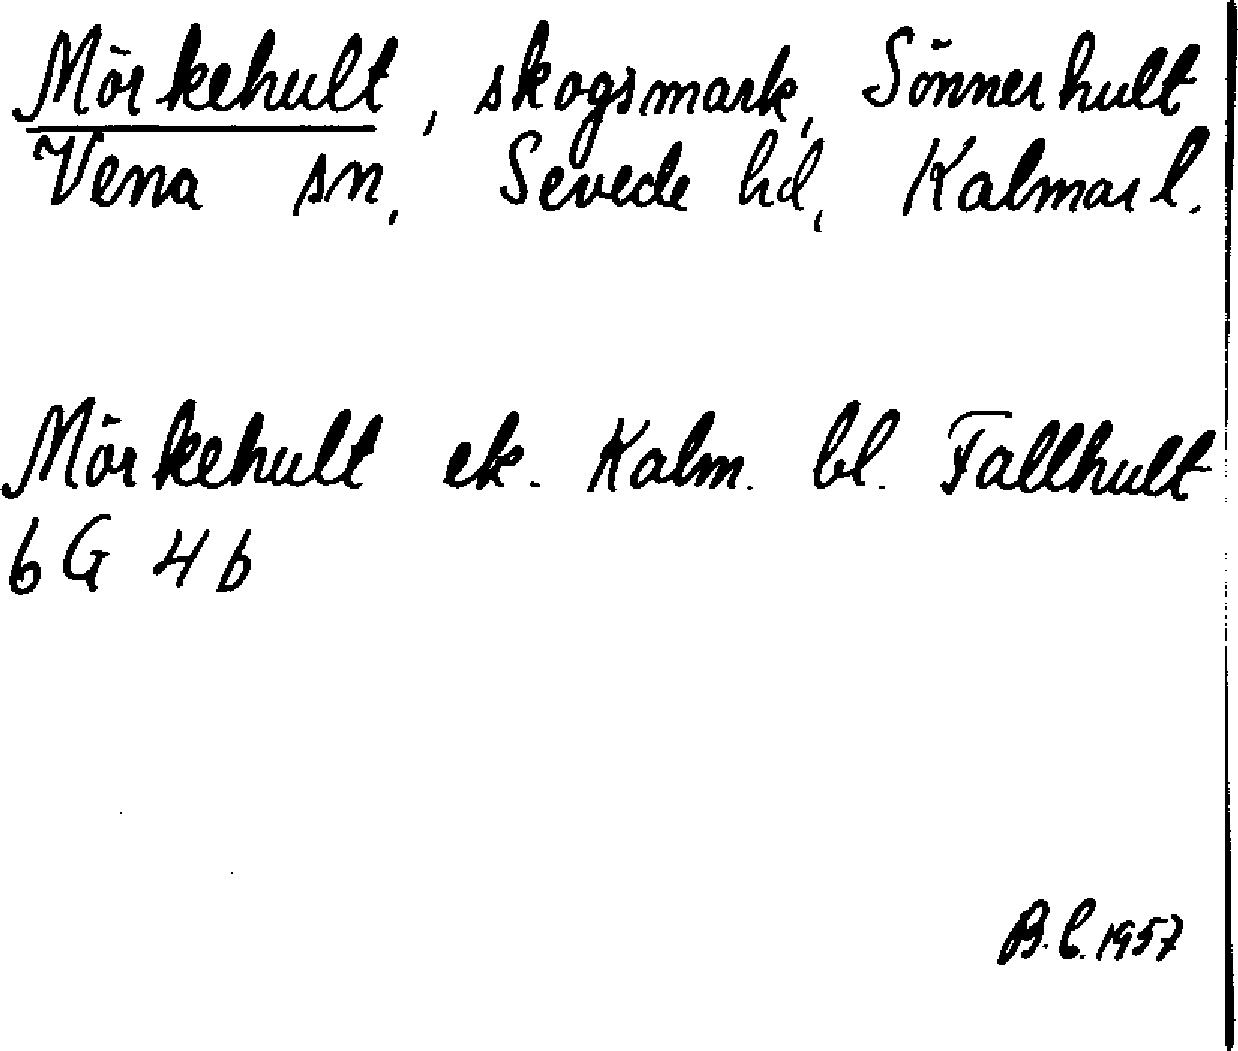 Mörkehult, skogsmark, Sönnerhult
Vena sn, Sevede hd, Kalmar l.
Mörkehult ek. Kalm. bl. Fallhult
6G 4b
B.C. 1957